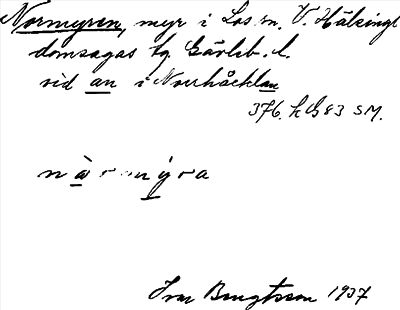 Normyren, myr i Los sn. V. Hälsingl
domsagas tg. Gävleb. l.
vid an i Norrhåcklan
376. h G 83 SM.
nàrmýra
Ivar Bengtsson 1937